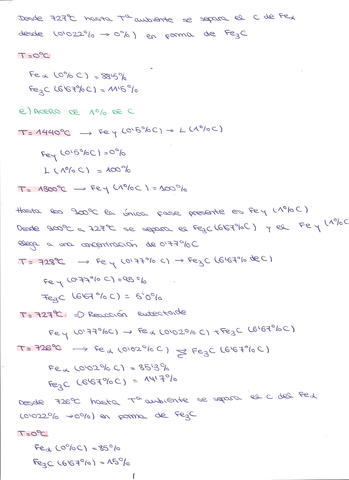 Desde 727ºC hasta Tª ambiente se separa el C de Feα
desde (0'022% → 0%) en forma de Fe3C
T=0ºC
Feα (0%C) = 88'5%
Fe3C (6'67%C) = 11'5%
e) ACERO DE 1% DE C
T=1440ºC → Feγ (0'5%C) → L (1%C)
Feγ (0'5%C) = 0%
L (1%C) = 100%
→ Feγ (1%C) = 100%
Hasta los 900ºC la única fase presente es Feγ (1%C)
Desde 900ºC a 727ºC se separa el Fe3C (6'67%C) y el Feγ (1%C)
llega a una concentración de 0'77%C
T=728ºC → Feγ (0'77%C) → Fe3C (6'67% de C)
Feγ (0'77%C) = 95%
Fe3C (6'67%C) = 5'0%
T=727ºC ⇒ Reacción eutectoide
Feγ (0'77%C) → Feα (0'02%C) + Fe3C (6'67%C)
T=726ºC → Feα (0'02%C) Fe3C (6'67%C)
Feα (0'02%C) = 85'3%
Fe3C (6'67%C) = 14'7%
Desde 726ºC hasta Tª ambiente se separa el C del Feα
(0'022% → 0%) en forma de Fe3C
T=0ºC
Feα (0%C) = 85%
Fe3C (6'67%C) = 15%